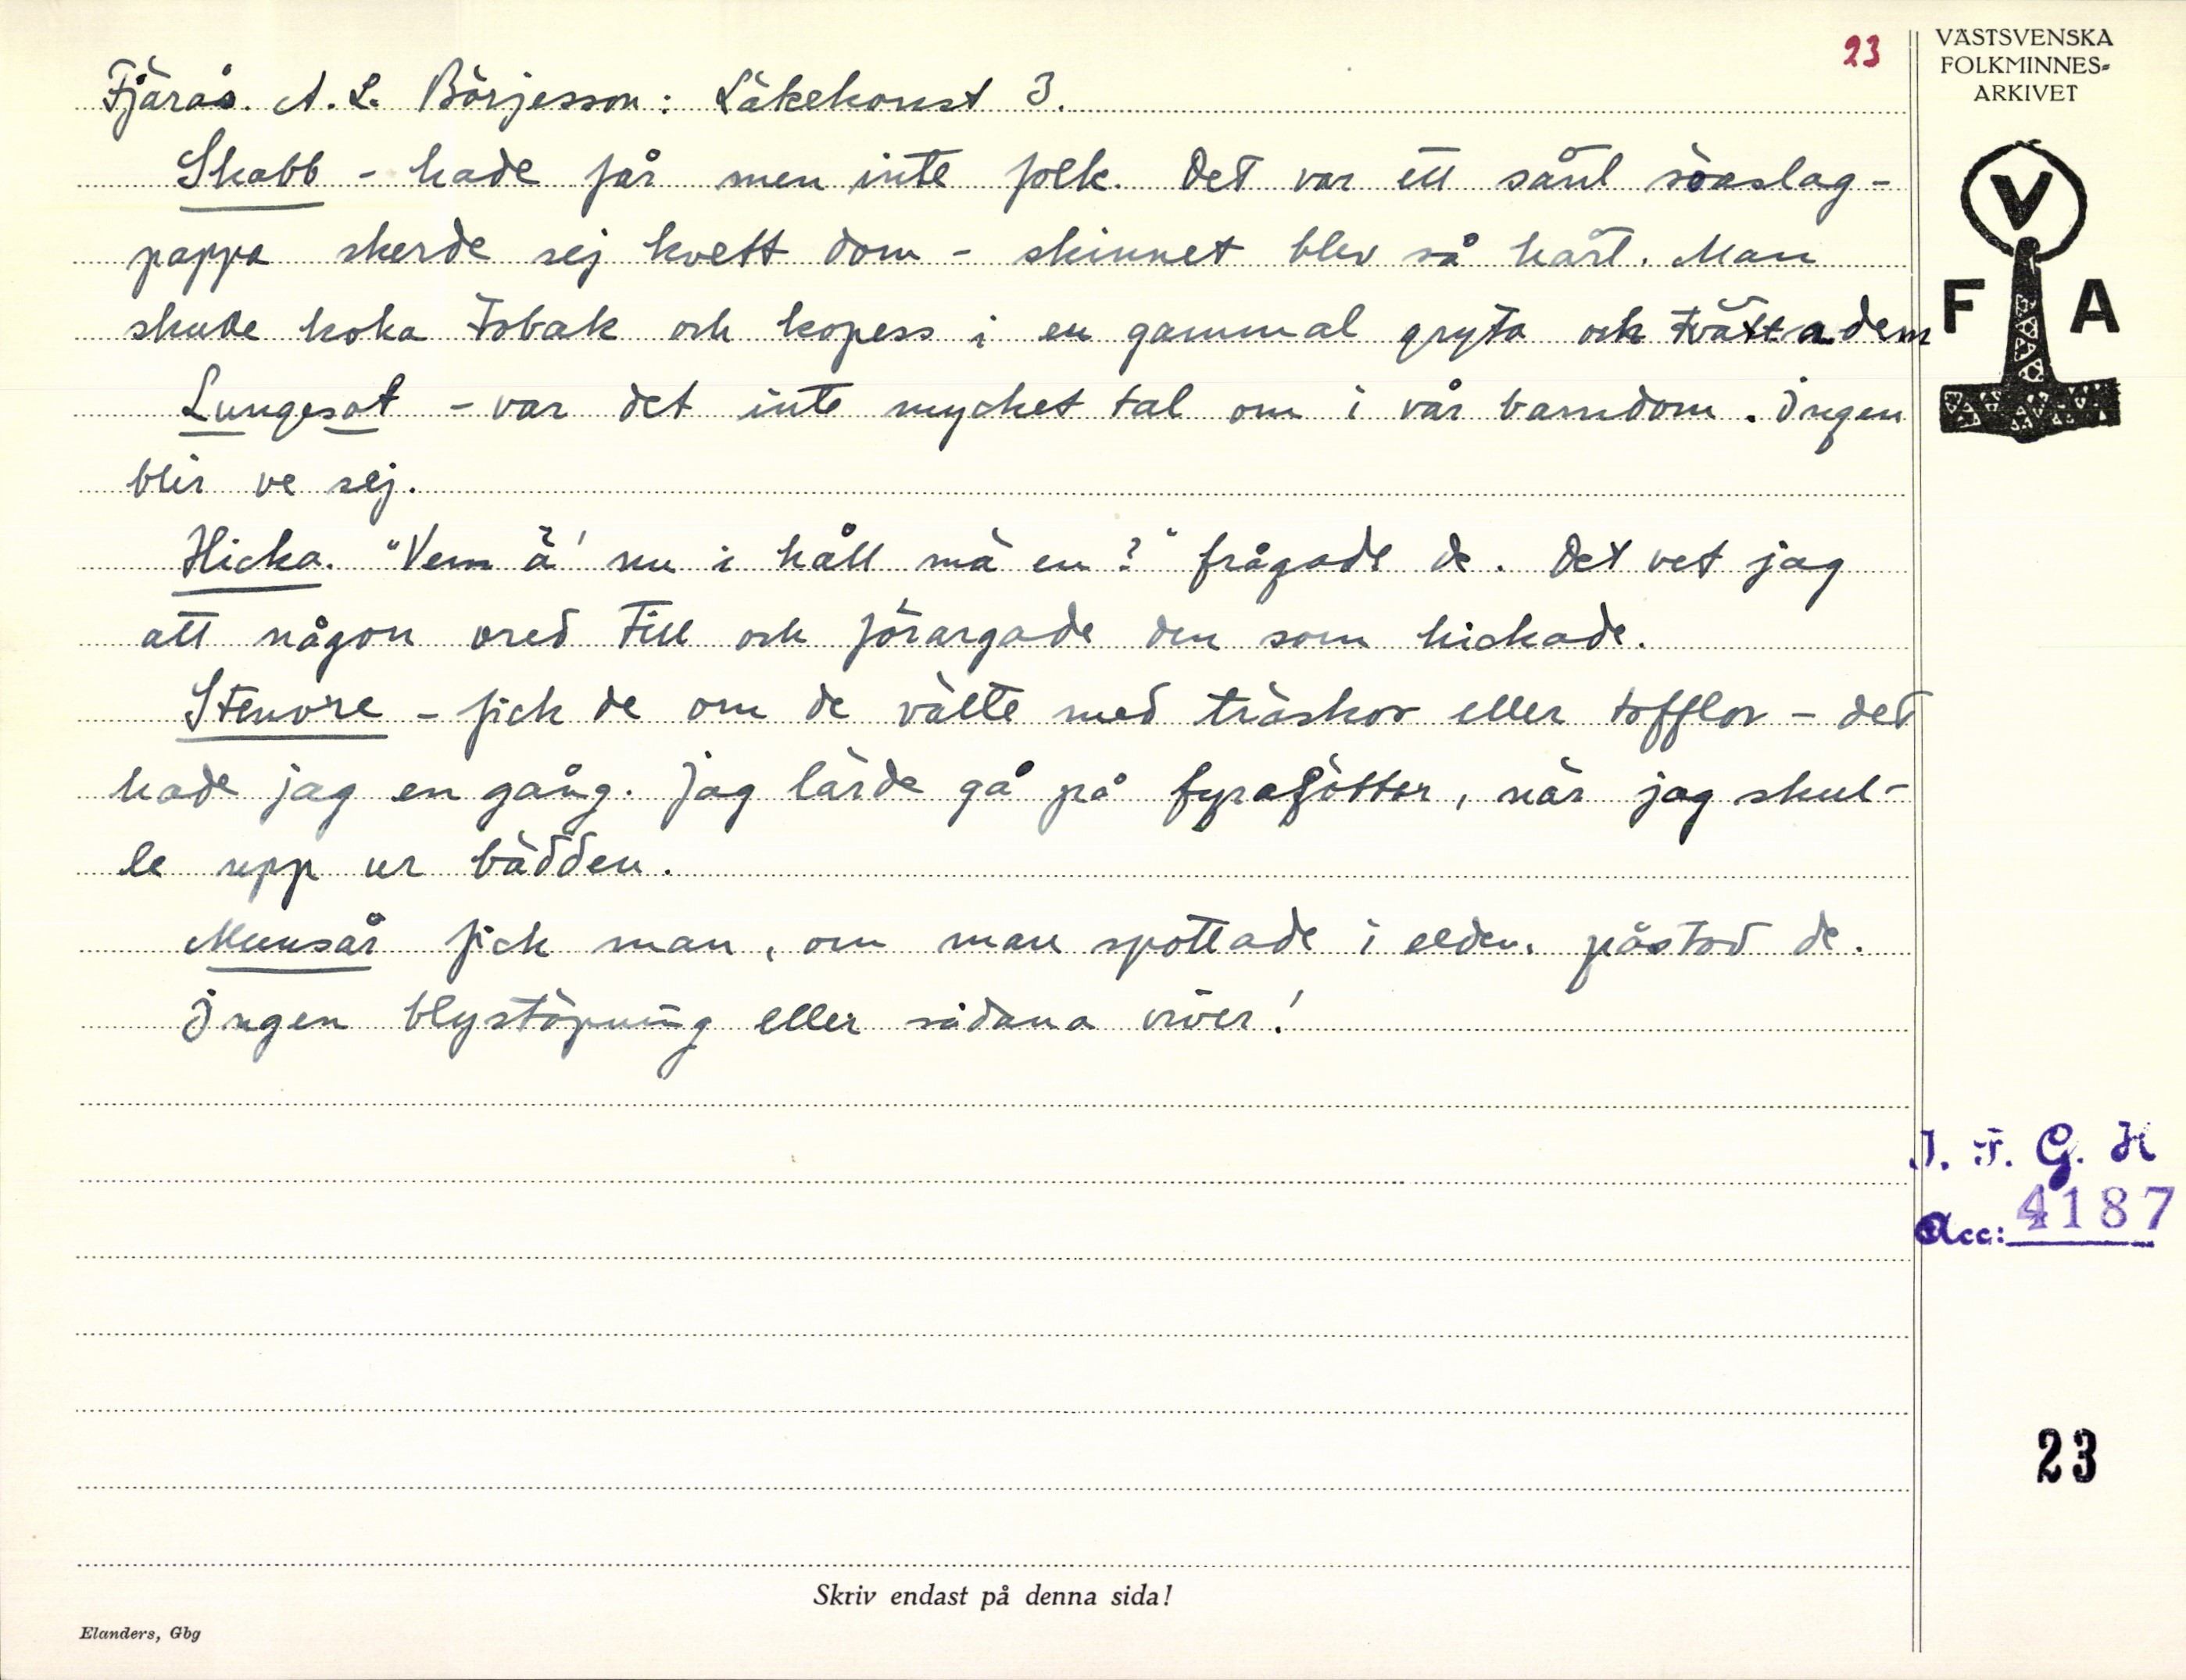 23
VÄSTSVENSKA
FOLKMINNES-
ARKIVET
Fjärås. A. L. Börjesson: Läkekonst 3.
Skabb - hade får men inte folk. Det var ett sånt
pappa skerde sej kvett dom - skinnet blev så hårt. Man
skulle koka tobak och kopess i en gammal gryta och tvätta dem
V
F A
Lungesot - var det inte mycket tal om i vår barndom. Ingen
blir ve sej.
Hicka. "Vem ä' nu i håll mä en?" frågade de. Det vet jag
att någon vred till och förargade den som hickade.
Stenvre - fick de om de välte med träskor eller tofflor - det
hade jag en gång. Jag lärde gå på fyrafötter, när jag skul-
le upp ur bädden.
Munsår fick man, om man spottade i elden. påstod de.
Ingen blystöpning eller sådana
I. F. G. H
Acc: 4187
23
Skriv endast på denna sida!
Elanders, Gbg